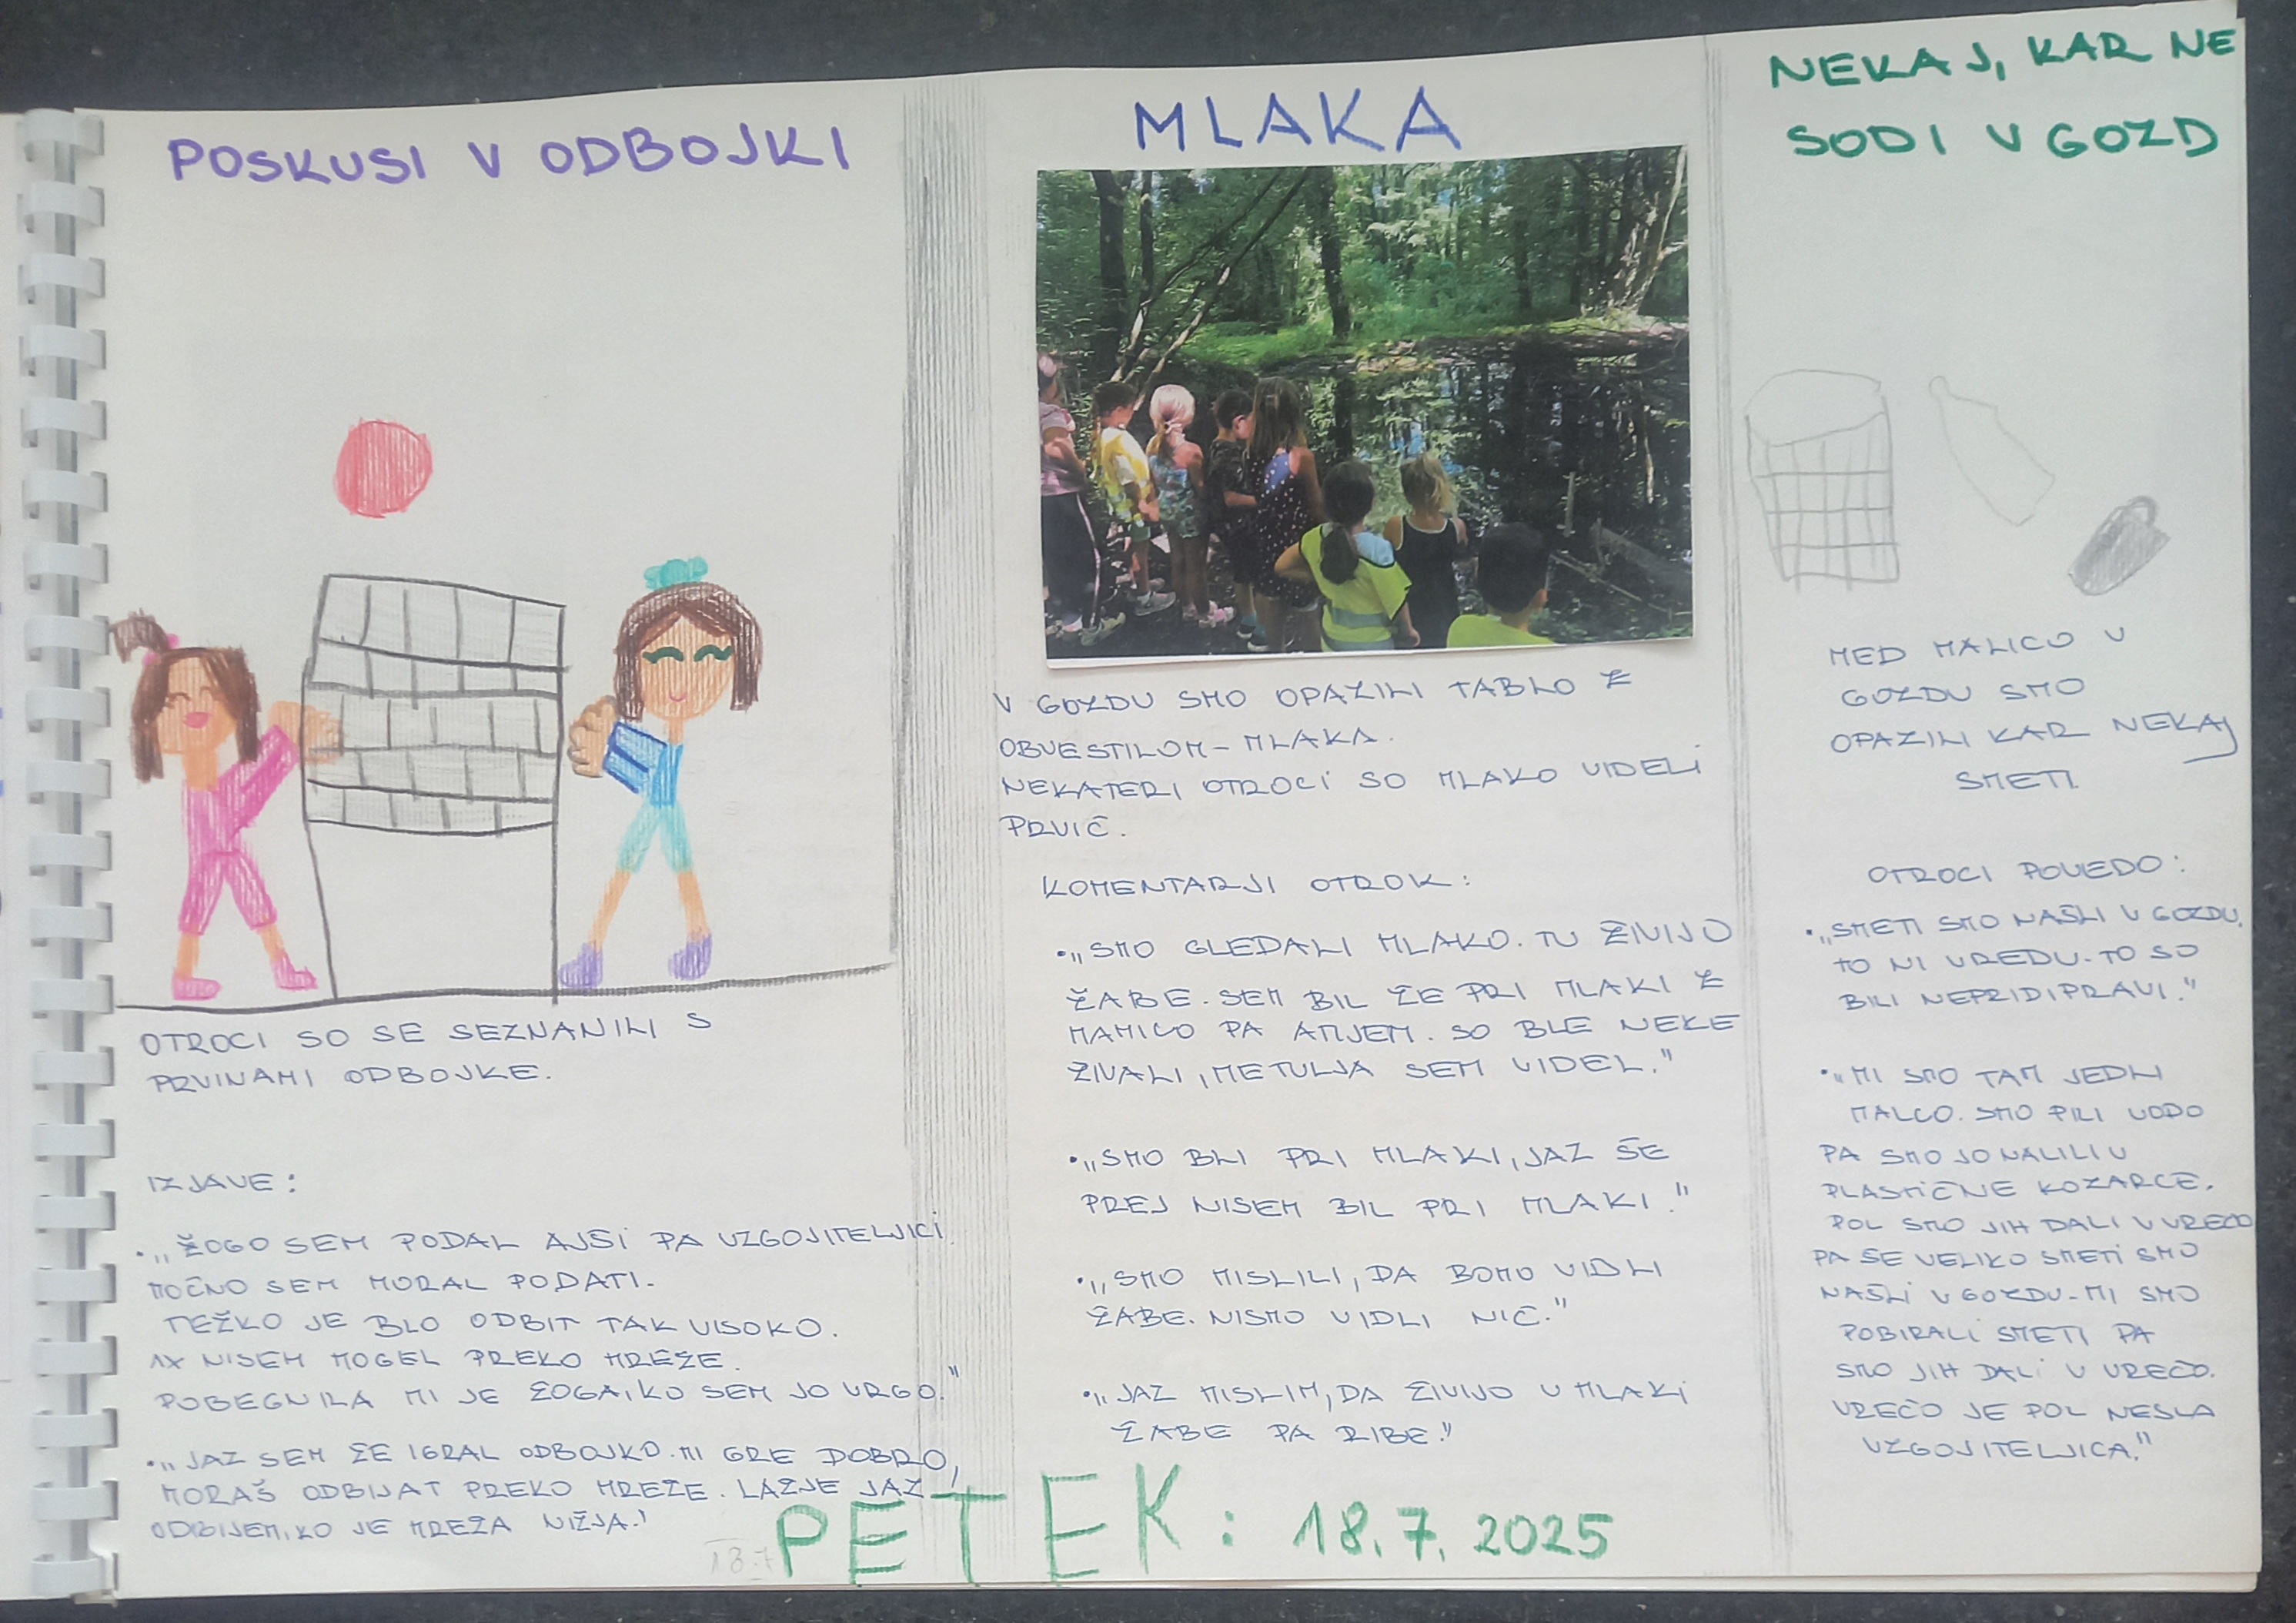 POSKUSI V ODBOJKI
OTROCI SO SE SEZNANILI S
PRVINAMI ODBOJKE.
IZJAVE:
• „ŽOGO SEM PODAL AJŠI PA VZGOJITELJICI.
MOČNO SEM MORAL PODATI.
TEŽKO JE BLO ODBIT TAK VISOKO.
1X NISEM MOGEL PREKO MREŽE.
POBEGNILA MI JE ŽOGA, KO SEM JO VRGO."
• „JAZ SEM ŽE IGRAL ODBOJKO. MI GRE DOBRO,
MORAŠ ODBIJAT PREKO MREŽE. LAŽJE JAZ
ODBIJEM, KO JE MREŽA NIŽJA."
MLAKA
V GOZDU SMO OPAZILI TABLO Z
OBVESTILOM - MLAKA.
NEKATERI OTROCI SO MLAKO VIDELI
PRVIČ.
KOMENTARJI OTROK:
• „SMO GLEDALI MLAKO. TU ŽIVIJO
ŽABE. SEM BIL ŽE PRI MLAKI Z
MAMICO PA ATIJEM. SO BLE NEKE
ŽIVALI, METULJA SEM VIDEL."
• „SMO BLI PRI MLAKI, JAZ ŠE
PREJ NISEM BIL PRI MLAKI."
• „SMO MISLILI, DA BOMO VIDLI
ŽABE. NISMO VIDLI NIČ."
• „JAZ MISLIM, DA ŽIVIJO V MLAKI
ŽABE PA RIBE."
NEKAJ, KAR NE
SODI V GOZD
MED MALICO V
GOZDU SMO
OPAZILI KAR NEKAJ
SMETI.
OTROCI POVEDO:
• „SMETI SMO NAŠLI V GOZDU.
TO NI VREDU. TO SO
BILI NEPRIDIPRAVI."
• „MI SMO TAM JEDLI
MALCO. SMO PILI VODO
PA SMO JO NALILI V
PLASTIČNE KOZARCE.
POL SMO JIH DALI V VREČO
PA ŠE VELIKO SMETI SMO
NAŠLI V GOZDU. MI SMO
POBIRALI SMETI PA
SMO JIH DALI V VREČO.
VREČO JE POL NESLA
VZGOJITELJICA."
18.7
PETEK: 18.7.2025